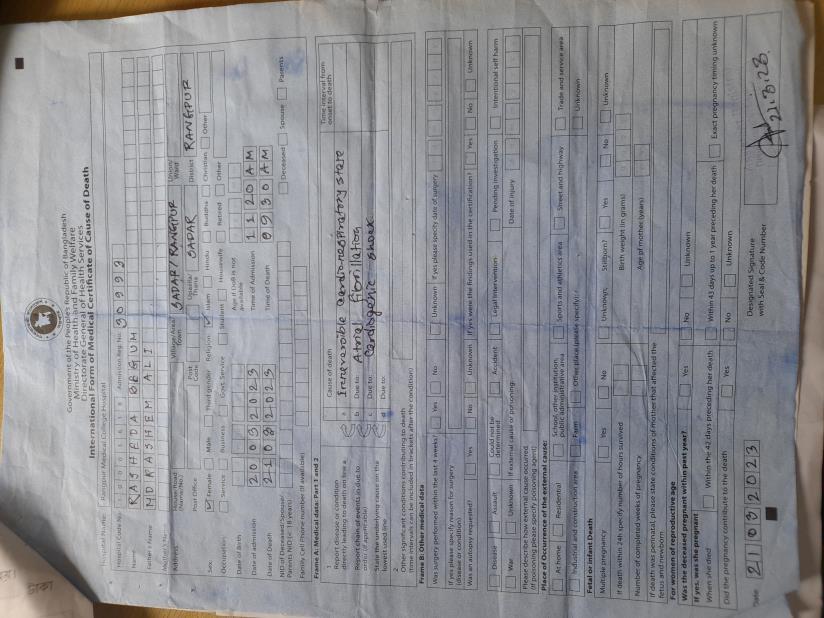 Government of the People's Republic of Bangladesh
Ministry of Health and Family Welfare
Directorate General of Health Services
International Form of Medical Certificate of Cause of Death
Hospital Name: Rangpur Medical College Hospital
Hospital Code No. Admission Reg. No.
Name RASHEDA BEGUM
Father's Name MD RASHEM ALI
Mother's
Address House/Road (Name/No.) Village/Area/Town SADAR/RANGPUR Union/Ward
Post Office Post Code Upazila/Thana SADAR District RANGPUR
Sex Female Male Third gender Religion Islam Hindu Buddha Christian Other
Occupation Service Business Govt. Service Student Housewife Retired Other
Date of Birth Age if DoB is not available
Date of admission 20032023 Time of Admission 1120AM
Date of Death 21032023 Time of Death 0930AM
NID of Deceased/Spouse/Parents NID (<18 years) Deceased Spouse Parents
Family Cell Phone number (if available)
Frame A: Medical data: Part 1 and 2
1 Cause of death Time interval from onset to death
Report disease or condition directly leading to death on line a
a Irreversible cardio-respiratory state
Report chain of events in due to order (if applicable)
b Due to: Atrial fibrillation
c Due to: Cardiogenic shock
State the underlying cause on the lowest used line
d Due to:
2 Other significant conditions contributing to death (time intervals can be included in brackets after the condition)
Frame B: Other medical data
Was surgery performed within the last 4 weeks? Yes No Unknown If yes please specify date of surgery
If yes please specify reason for surgery (disease or condition)
Was an autopsy requested? Yes No Unknown If yes were the findings used in the certification? Yes No Unknown
Disease Assault Could not be determined Accident Legal Intervention Pending investigation Intentional self harm
War Unknown If external cause or poisoning: Date of injury
Please describe how external cause occurred (if poisoning please specify poisoning agent)
Place of Occurrence of the external cause:
At home Residential School, other institution, public administrative area Sports and athletics area Street and highway Trade and service area
Industrial and construction area Farm Other place (please specify): Unknown
Fetal or infant Death
Multiple pregnancy Yes No Unknown; Stillborn? Yes No Unknown
If death within 24h specify number of hours survived Birth weight (in grams)
Number of completed weeks of pregnancy Age of mother (years)
If death was perinatal, please state conditions of mother that affected the fetus and newborn
For women of reproductive age
Was the deceased pregnant within past year? Yes No Unknown
If yes, was she pregnant
When she died Within the 42 days preceding her death Within 43 days up to 1 year preceding her death Exact pregnancy timing unknown
Did the pregnancy contribute to the death Yes No Unknown
Date 21032023 Designated Signature with Seal & Code Number
21.3.23